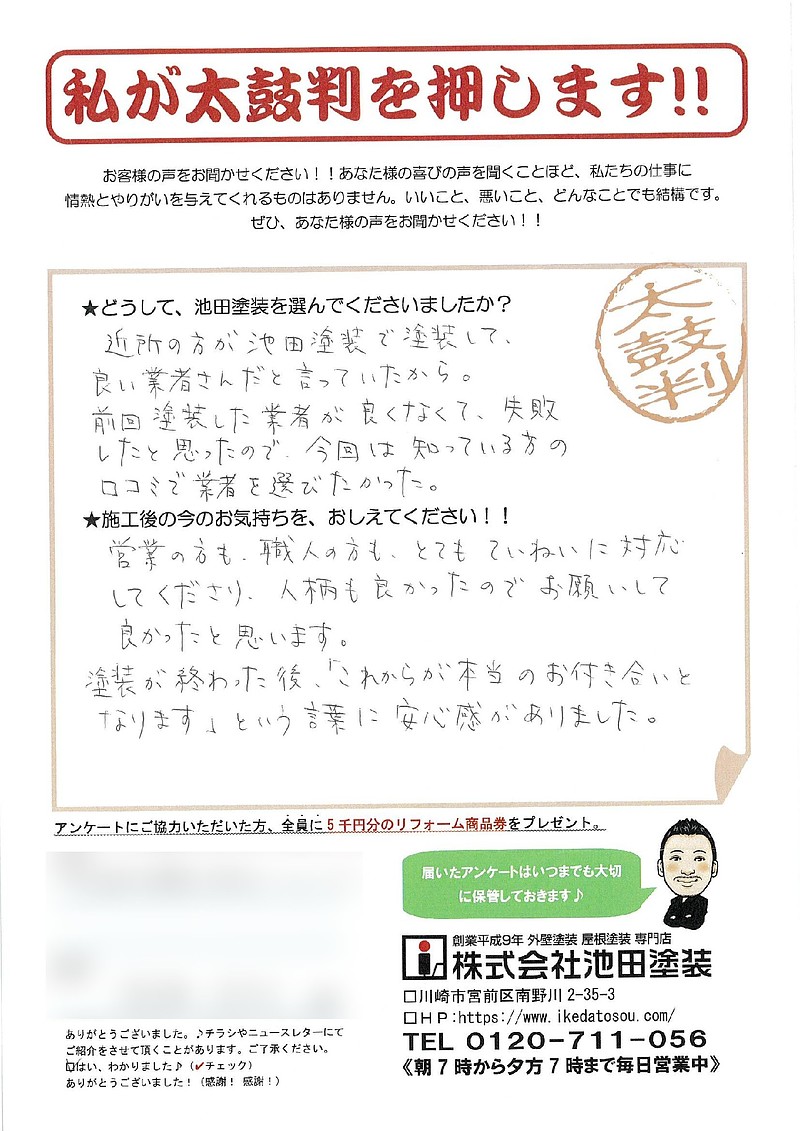 私が太鼓判を押します!!
お客様の声をお聞かせください！！あなた様の喜びの声を聞くことほど、私たちの仕事に
情熱とやりがいを与えてくれるものはありません。いいこと、悪いこと、どんなことでも結構です。
ぜひ、あなた様の声をお聞かせください！！
太鼓判
★どうして、池田塗装を選んでくださいましたか？
近所の方が池田塗装で塗装して、
良い業者さんだと言っていたから。
前回塗装した業者が良くなくて、失敗
したと思ったので、今回は知っている方の
口コミで業者を選びたかった。
★施工後の今のお気持ちを、おしえてください！！
営業の方も、職人の方も、とてもていねいに対応
してくださり、人柄も良かったのでお願いして
良かったと思います。
塗装が終わった後、「これからが本当のお付き合いと
なります」という言葉に安心感がありました。
アンケートにご協力いただいた方、全員に5千円分のリフォーム商品券をプレゼント。
届いたアンケートはいつまでも大切
に保管しておきます♪
創業平成9年 外壁塗装 屋根塗装 専門店
株式会社池田塗装
□川崎市宮前区南野川2-35-3
□HP:https://www.ikedatosou.com/
TEL 0120-711-056
《朝7時から夕方7時まで毎日営業中》
ありがとうございました。♪チラシやニュースレターにて
ご紹介をさせて頂くことがあります。ご了承ください。
☑はい、わかりました♪（✓チェック）
ありがとうございました！（感謝！感謝！）